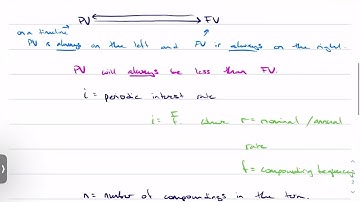 PV FV
on a timeline
PV is always on the left and FV is always on the right.
PV will always be less than FV.
i = periodic interest rate
i = r/f where r = nominal / annual
rate
f = compounding frequency
n = number of compoundings in the term.